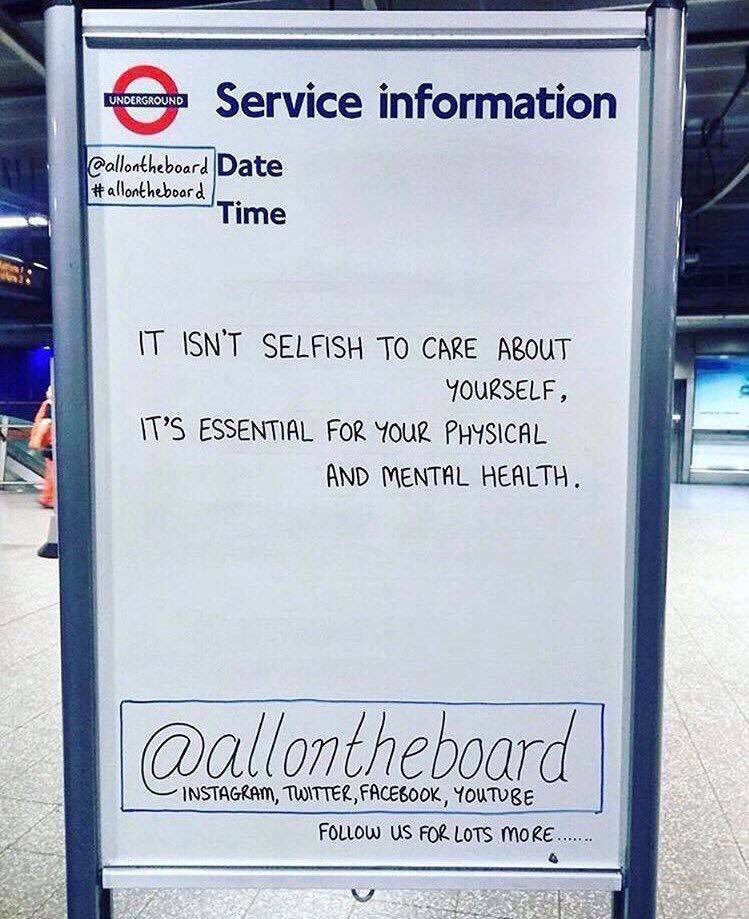 UNDERGROUND
Service information
@allontheboard
#allontheboard
Date
Time
IT ISN'T SELFISH TO CARE ABOUT
YOURSELF,
IT'S ESSENTIAL FOR YOUR PHYSICAL
AND MENTAL HEALTH.
@allontheboard
INSTAGRAM, TWITTER, FACEBOOK, YOUTUBE
FOLLOW US FOR LOTS MORE.......